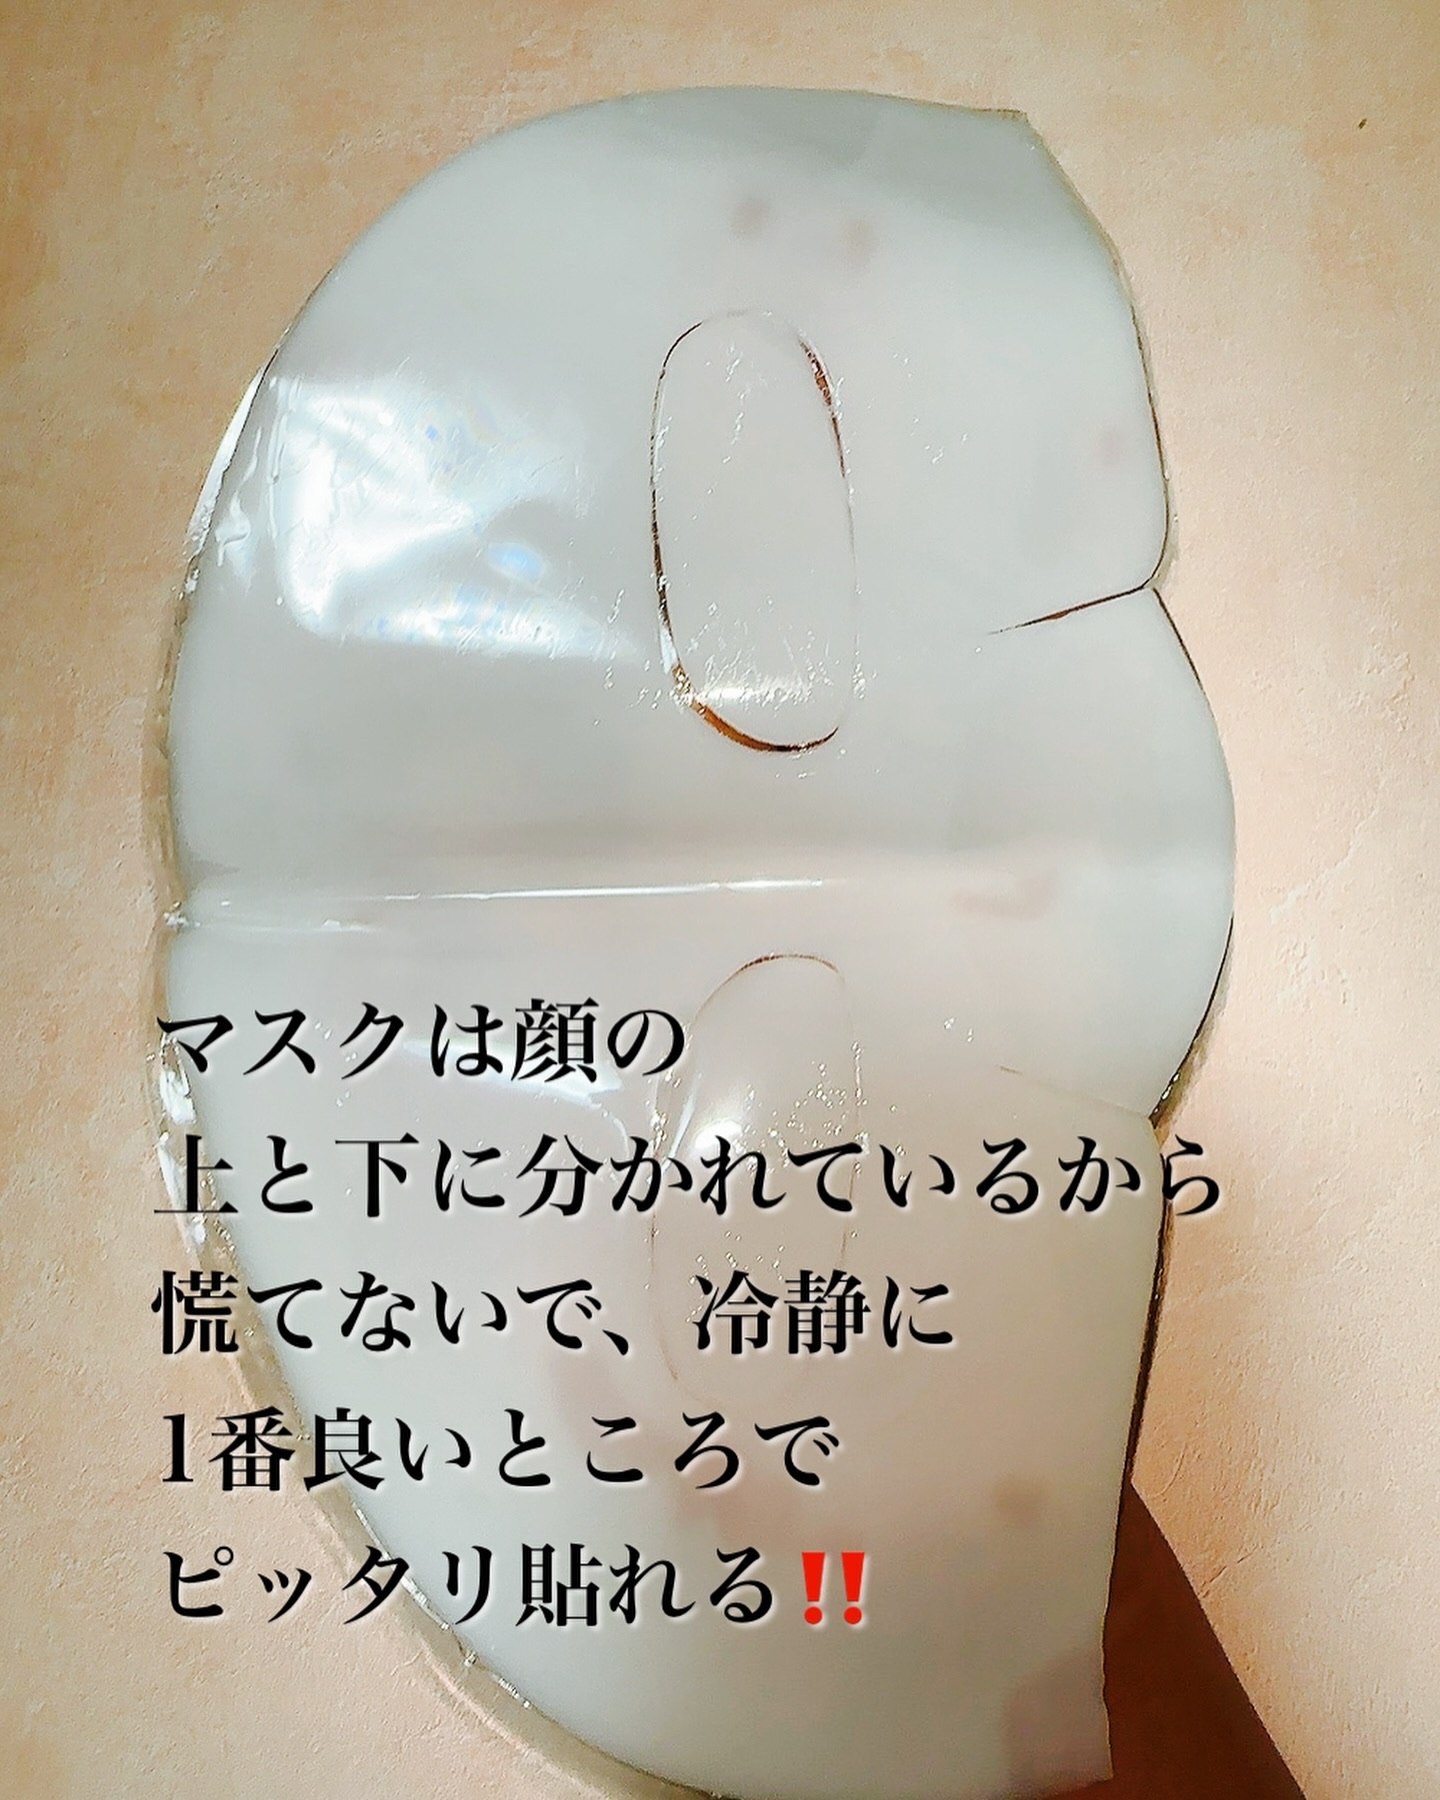 マスクは顔の
上と下に分かれているから
慌てないで、冷静に
1番良いところで
ピッタリ貼れる‼️